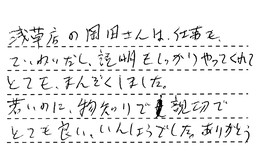 浅草店の岡田さんは、仕事も、
ていねいだし、説明もしっかりやってくれて
とても、まんぞくしました。
若いのに、物知りで親切で
とても良い、いんしょうでした。ありがとう